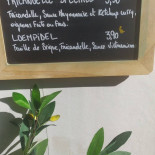 FRICANDELLE SPECIALE 3,50
Fricandelle, Sauce Mayonnaise et Ketchup curry,
oignons frits ou frais.
LOEMPIDEL 3,90 €
Feuille de Brique, Fricandelle, Sauce Vietnamienne